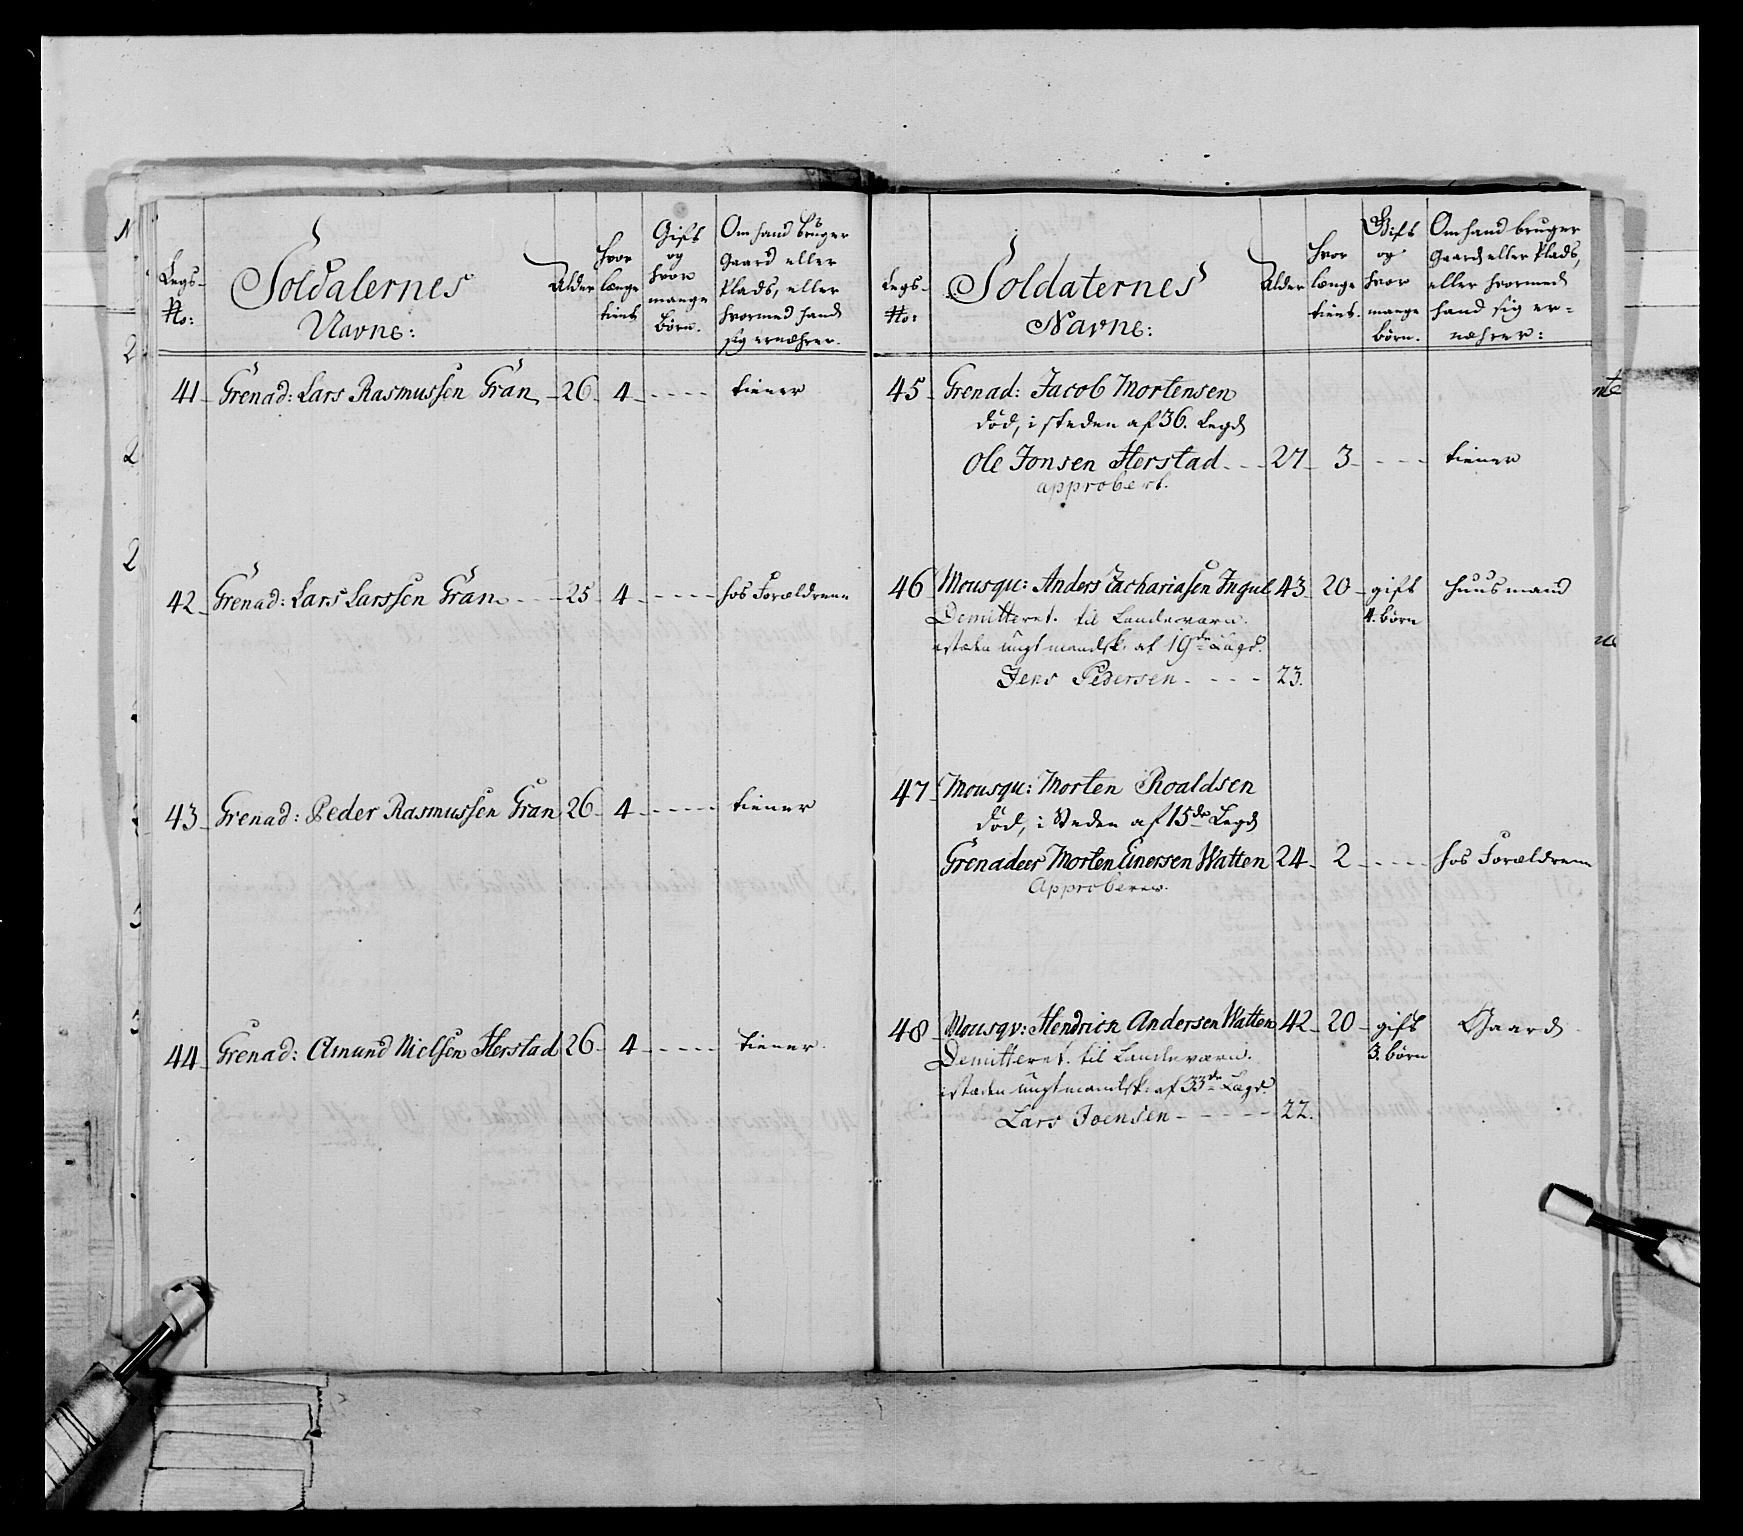 Legs-
No:
Soldaternes
Navne:
Alder
hvor
længe
tient
Gift
og
hvor
mange
børn.
Om hand bruger
Gaard eller
Plads, eller
hvormed hand
sig ernæhrer.
41 Grenad: Lars Rasmussen Gran 26 4 - - - - tiener
42 Grenad: Lars Larssen Gran 25 4 - - - - hos Forældrene
43 Grenad: Peder Rasmussen Gran 26 4 - - - - tiener
44 Grenad: Amund Nielsen Herstad 26 4 - - - - tiener
Legs-
No:
Soldaternes
Navne:
Alder
hvor
længe
tient.
Gift
og
hvor
mange
børn.
Om hand bruger
Gaard eller Plads,
eller hvormed
hand sig er-
næhrer:
45 Grenad: Jacob Mortensen
død, i steden af 36. Legd
Ole Jonsen Herstad 27 3 - - - - tiener
approbert.
46 Mousqu: Anders Zachariasen Ingul 43 20 gift huusmand
4. børn
Demitteret til Landeværn.
istæden ungt mandsk. af 19de Lægd.
Jens Pedersen - - - - 23.
47 Mousqu: Morten Roaldsen
død, i Steden af 15de Legd
Grenadeer Morten Einersen Watten 24 2 - - - - hos Forældrene
48 Mousqv: Hendrich Andersen Watten 42 20 gift Gaard
3. børn
Demitteret til Landeværn.
istæden ungt mandsk: af 33de Lægd.
Lars Joensen - - - - - 22.